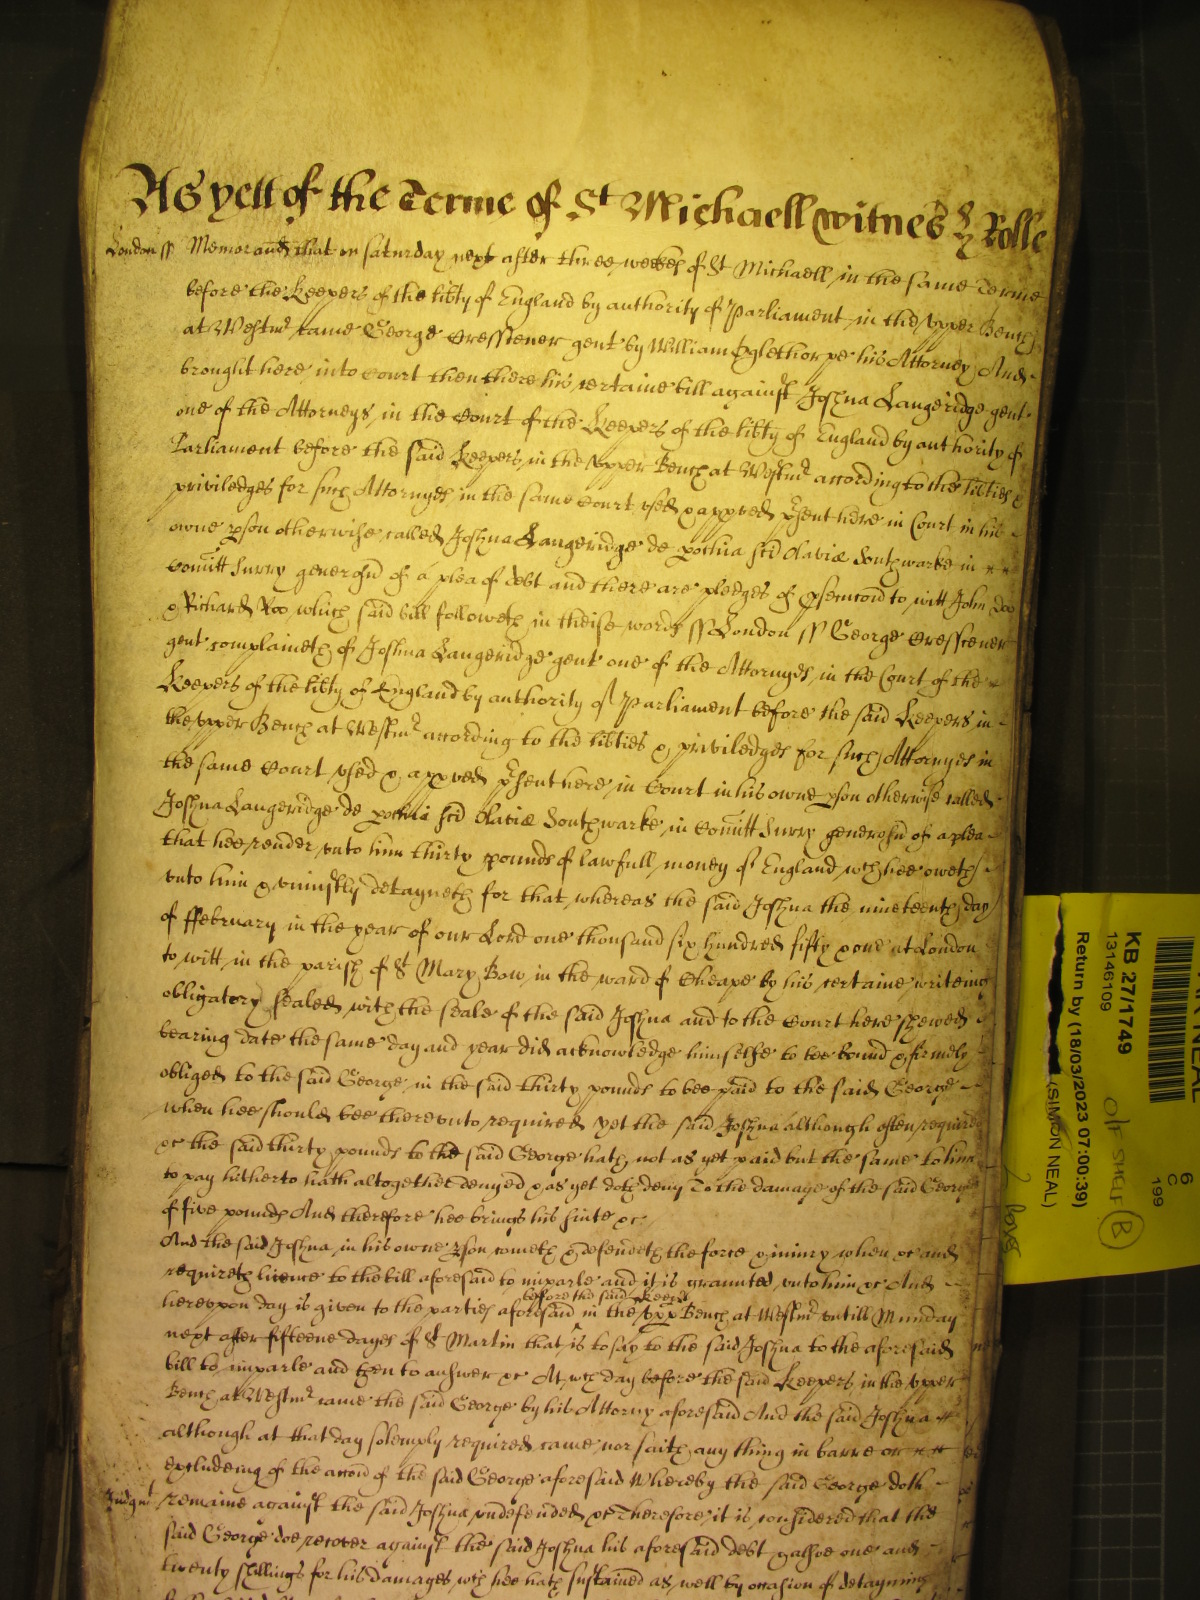 As yett of the Terme of St Michaell witnes & Rolle
London ss Memorand that on saturday next after three weekes of St Michaell in the same Terme
before the Keepers of the libty of England by authority of Parliament in the upper Bench
at Westmr came George Cresstener gent by William Oglethorpe his Attorney And
brought here into Court then there his certaine bill against Joshua Langeridge gent
one of the Attorneys in the Court of the Keepers of the libty of England by authority of
Parliament before the said Keepers in the upper Bench at Westmr according to the libties &
priviledges for such Attornyes in the same Court used & appved psent here in Court in his
owne pson otherwise called Joshua Langeridge de pochia sci Olavie Southwarke in
Comitt Surry generosu of a plea of debt and there are pledges of psecucon to witt John Doo
& Richard Roo which said bill followeth in theise words ss London ss George Cresstener
gent complaineth of Joshua Langeridge gent one of the Attornyes in the Court of the
Keepers of the libty of England by authority of Parliament before the said Keepers in
the upper Bench at Westmr according to the libties & priviledges for such Attornyes in
the same Court used & appved psent here in Court in his owne pson otherwise called
Joshua Langeridge de pochia sci Olavie Southwarke in Comitt Surry generosu of a plea
that hee render unto him thirty pounds of lawfull money of England wch hee oweth
unto him & uniustly detayneth for that whereas the said Joshua the nineteenth day
of ffebruary in the year of our Lord one thousand six hundred fifty & one at London
to witt in the parish of St Mary Bow in the ward of Cheape by his certaine writeing
obligatory sealed with the seale of the said Joshua and to the Court here shewed
bearing date the same day and year did acknowledge himselfe to bee bound & firmely
obliged to the said George in the said thirty pounds to bee paid to the said George
when hee should bee thereunto required yet the said Joshua although often required
&c the said thirty pounds to the said George hath not as yet paid but the same to him
to pay hitherto hath altogether denyed & as yet doth deny To the damage of the said George
of five pounds And therefore hee brings his suite &c
And the said Joshua in his owne pson cometh & defendeth the force & iniury when &c and
requireth licence to the bill aforesaid to imparle and it is graunted unto him &c And
before the said Keeps
hereupon day is given to the parties aforesaid in the upp Bench at Westmr untill Munday
next after fifteene dayes of St Martin that is to say to the said Joshua to the aforesaid
bill to imparle and then to answer &c At wch day before the said Keepers in the upper
Bench at Westmr came the said George by his Attorny aforesaid And the said Joshua
although at that day solemply required came nor saith any thing in barre or
excludeing of the accon of the said George aforesaid Whereby the said George doth
Judgmt remaine against the said Joshua undefended &c Therefore it is considered that the
said George doe recover against the said Joshua his aforesaid debt & alsoe one and
twenty shillings for his damages wch hee hath sustained as well by occasion of detayning
KB 27/1749
13146109
Return by (18/03/2023 07:00:39)
(SIMON NEAL)
6
C
199
B